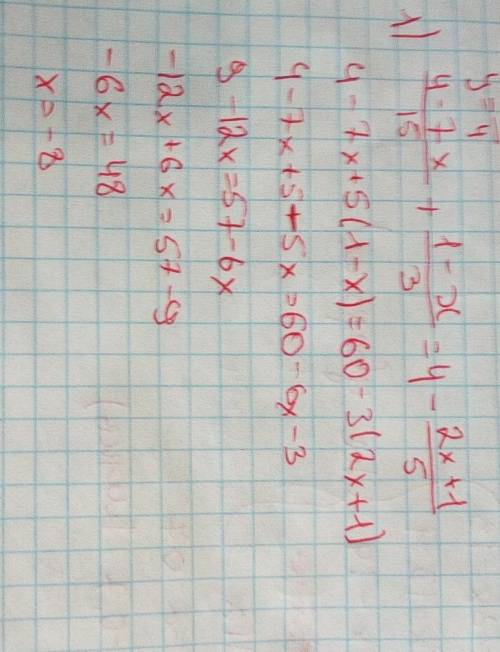 y = 4
1) (4 - 7x)/15 + (1 - x)/3 = 4 - (2x + 1)/5
4 - 7x + 5(1 - x) = 60 - 3(2x + 1)
4 - 7x + 5 - 5x = 60 - 6x - 3
9 - 12x = 57 - 6x
-12x + 6x = 57 - 9
-6x = 48
x = -8